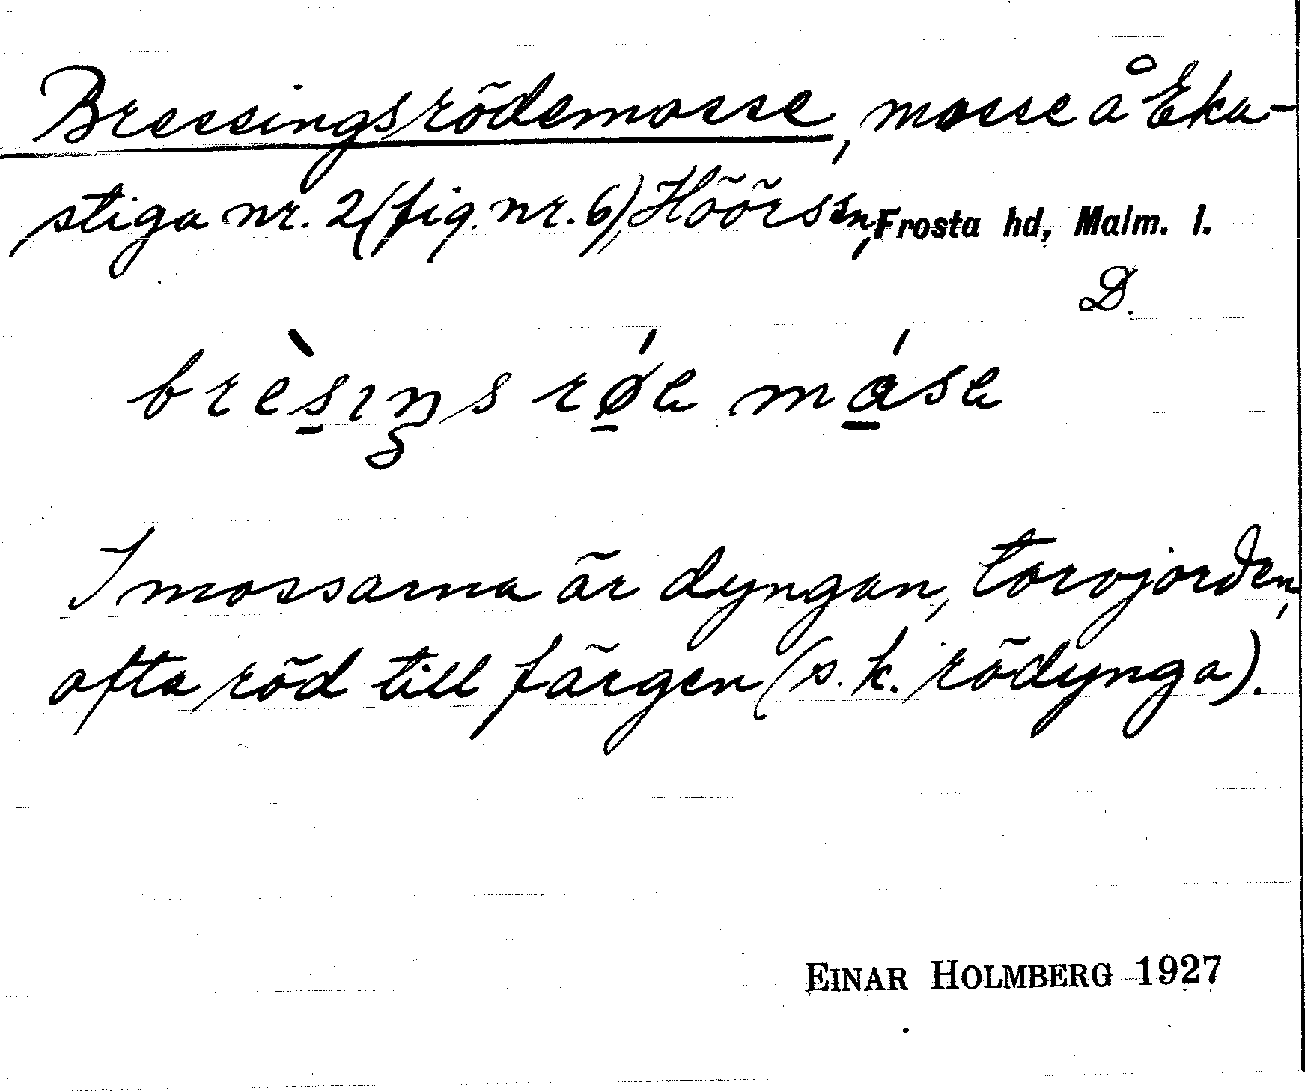 Bressingsrödemosse, mosse å Eka-
stiga nr. 2 (fig. nr. 6), Höörs sn, Frosta hd, Malm. l.
D.
brèsıŋs røe måse
I mossarna är dyngan, torvjorden,
ofta röd till färgen (s. k. rödynga).
EINAR HOLMBERG 1927